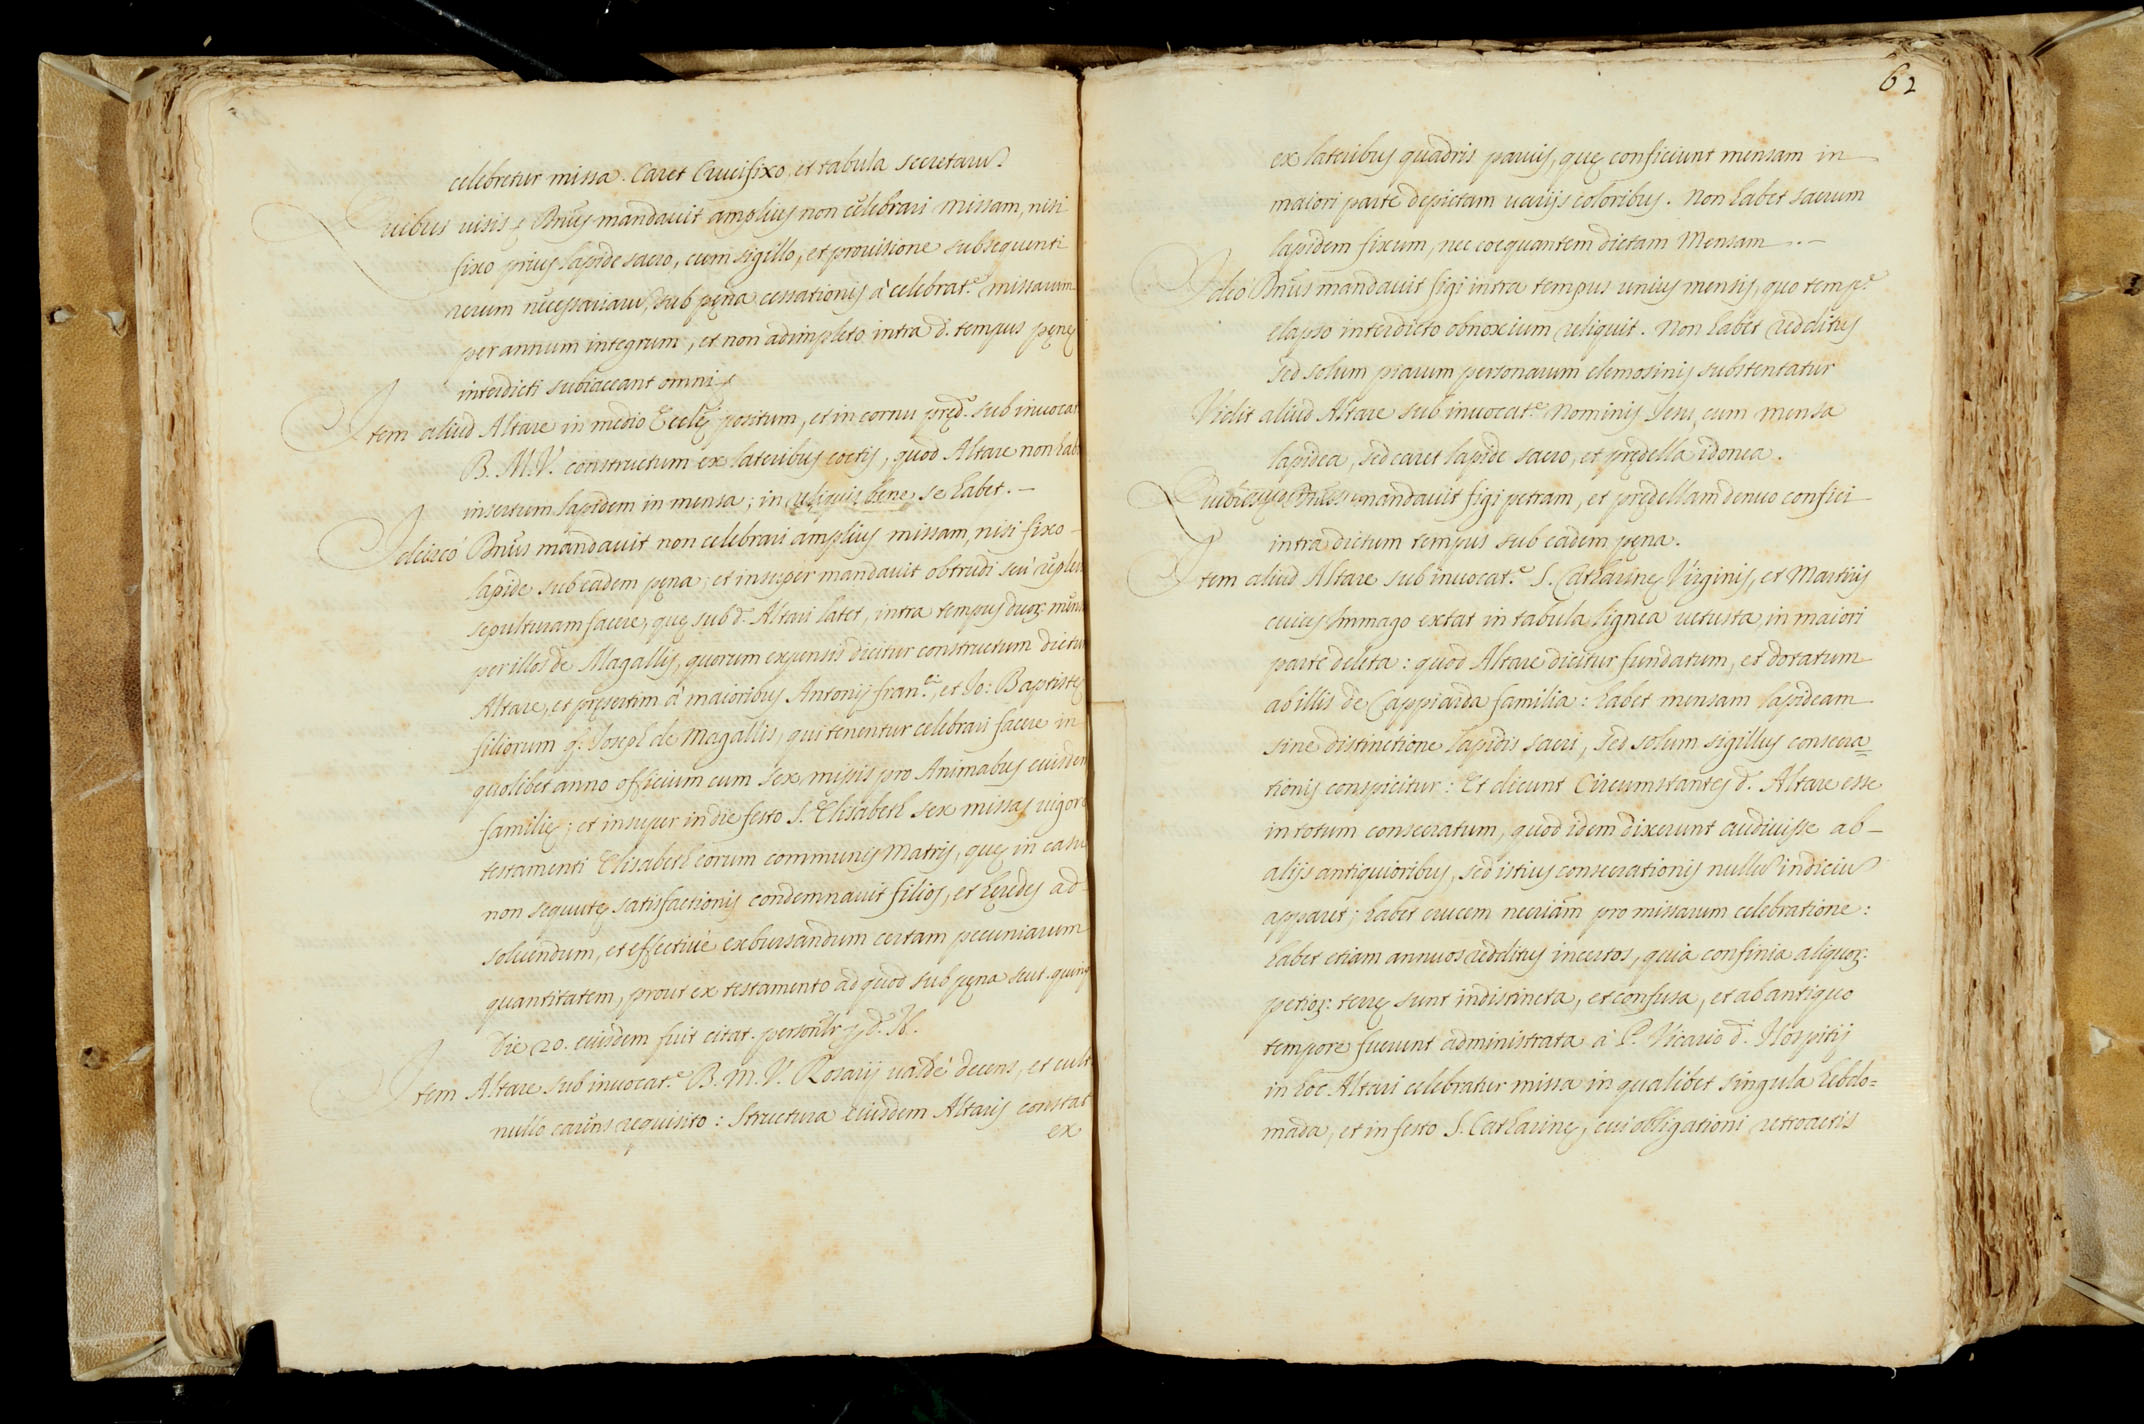 celebretur missa. Caret Crucifixo, et tabula secretarũ
Quibus visis Dnũs mandavit amplius non celebrari missam, nisi
fixo prius lapide sacro, cum sigillo, et provisione subsequenti
rerum necessariarũ, sub pęna cessationis à celebrat.e missarum
per annum integrum, et non adimpleto intra d. tempus pęnę
interdicti subiaceant omnı̃
Item aliud Altare in medio Ecclę positum, et in cornu pręd. sub invocat
B. M. V. constructum ex lateribus coctis, quod Altare non hab
insertum lapidem in mensa; in reliquis bene se habet.–
Idcirco Dnũs mandavit non celebrari amplius missam, nisi fixo
lapide sub eadem pęna; et insuper mandavit obtrudi seù repleri
sepulturam facere, quę sub d. Altari latet, intra tempus duor: mens
per illos de Magallis, quorum expensis dicitur constructum dictũ
Altare, et pręsertim à maioribus Antonij Fran.ci, et Jo: Baptistę
filiorum q. Joseph de Magallis, qui tenentur celebrari facere in
quolibet anno officium cum sex missis pro Animabus eiusdem
familię; et insuper in die festo S. Elisabeth sex missas vigore
testamenti Elisabeth eorum communis Matris, quę in casu
non sequutę satisfactionis condemnavit filios, et hęredes ad
solvendum, et effectivè exbursandum certam pecuniarum
quantitatem, prout ex testamento ad quod sub pęna scut. quinq
Die 20. eiusdem fuit citat. personlr
Item Altare sub invocat.e B. M. V. Rosarij valdè decens, et cult
nullo carens requisito: Structura eiusdem Altaris constat
ex
62
ex lateribus quadris parvis, quę conficiunt mensam in
maiori parte depictam varijs coloribus. Non habet sacrum
lapidem fixum, nec coequantem dictam Mensam.–
Ideò Dnũs mandavit figi intra tempus unius mensis, quo temp.e
elapso interdicto obnoxium reliquit. Non habet redditus
sed solum piarum personarum elemosinis substentatur
Vidit aliud Altare sub invocat.e Nominis Jesu, cum mensa
lapidea, sed caret lapide sacro, et prędella idonea.
mandavit figi petram, et prędellam denuo confici
intra dictum tempus sub eadem pęna.
Item aliud Altare sub invocat.e S. Catharinę Virginis, et Martiris
cuius Immago extat in tabula lignea vetusta, in maiori
parte deleta: quod Altare dicitur fundatum, et dotatum
ab illis de Cappiarda familia: habet mensam lapideam
sine distinctione lapidis sacri, sed solum sigillus consecra=
tionis conspicitur: Et dicunt Circumstantes d. Altare esse
in totum consecratum, quod idem dixerunt audivisse ab–
alijs antiquioribus, sed istius consecrationis nullũ indiciũ
apparet; habet crucem necriãm pro missarum celebratione:
habet etiam annuos redditus incertos, quia confinia aliquor:
petior: terrę sunt indistincta, et confusa, et ab antiquo
tempore fuerunt administrata à P. Vicario d.i Hospitij
in hoc Altari celebratur missa in qualibet singula hebdo=
mada, et in festo S. Catharinę, cui obligationi retroactis